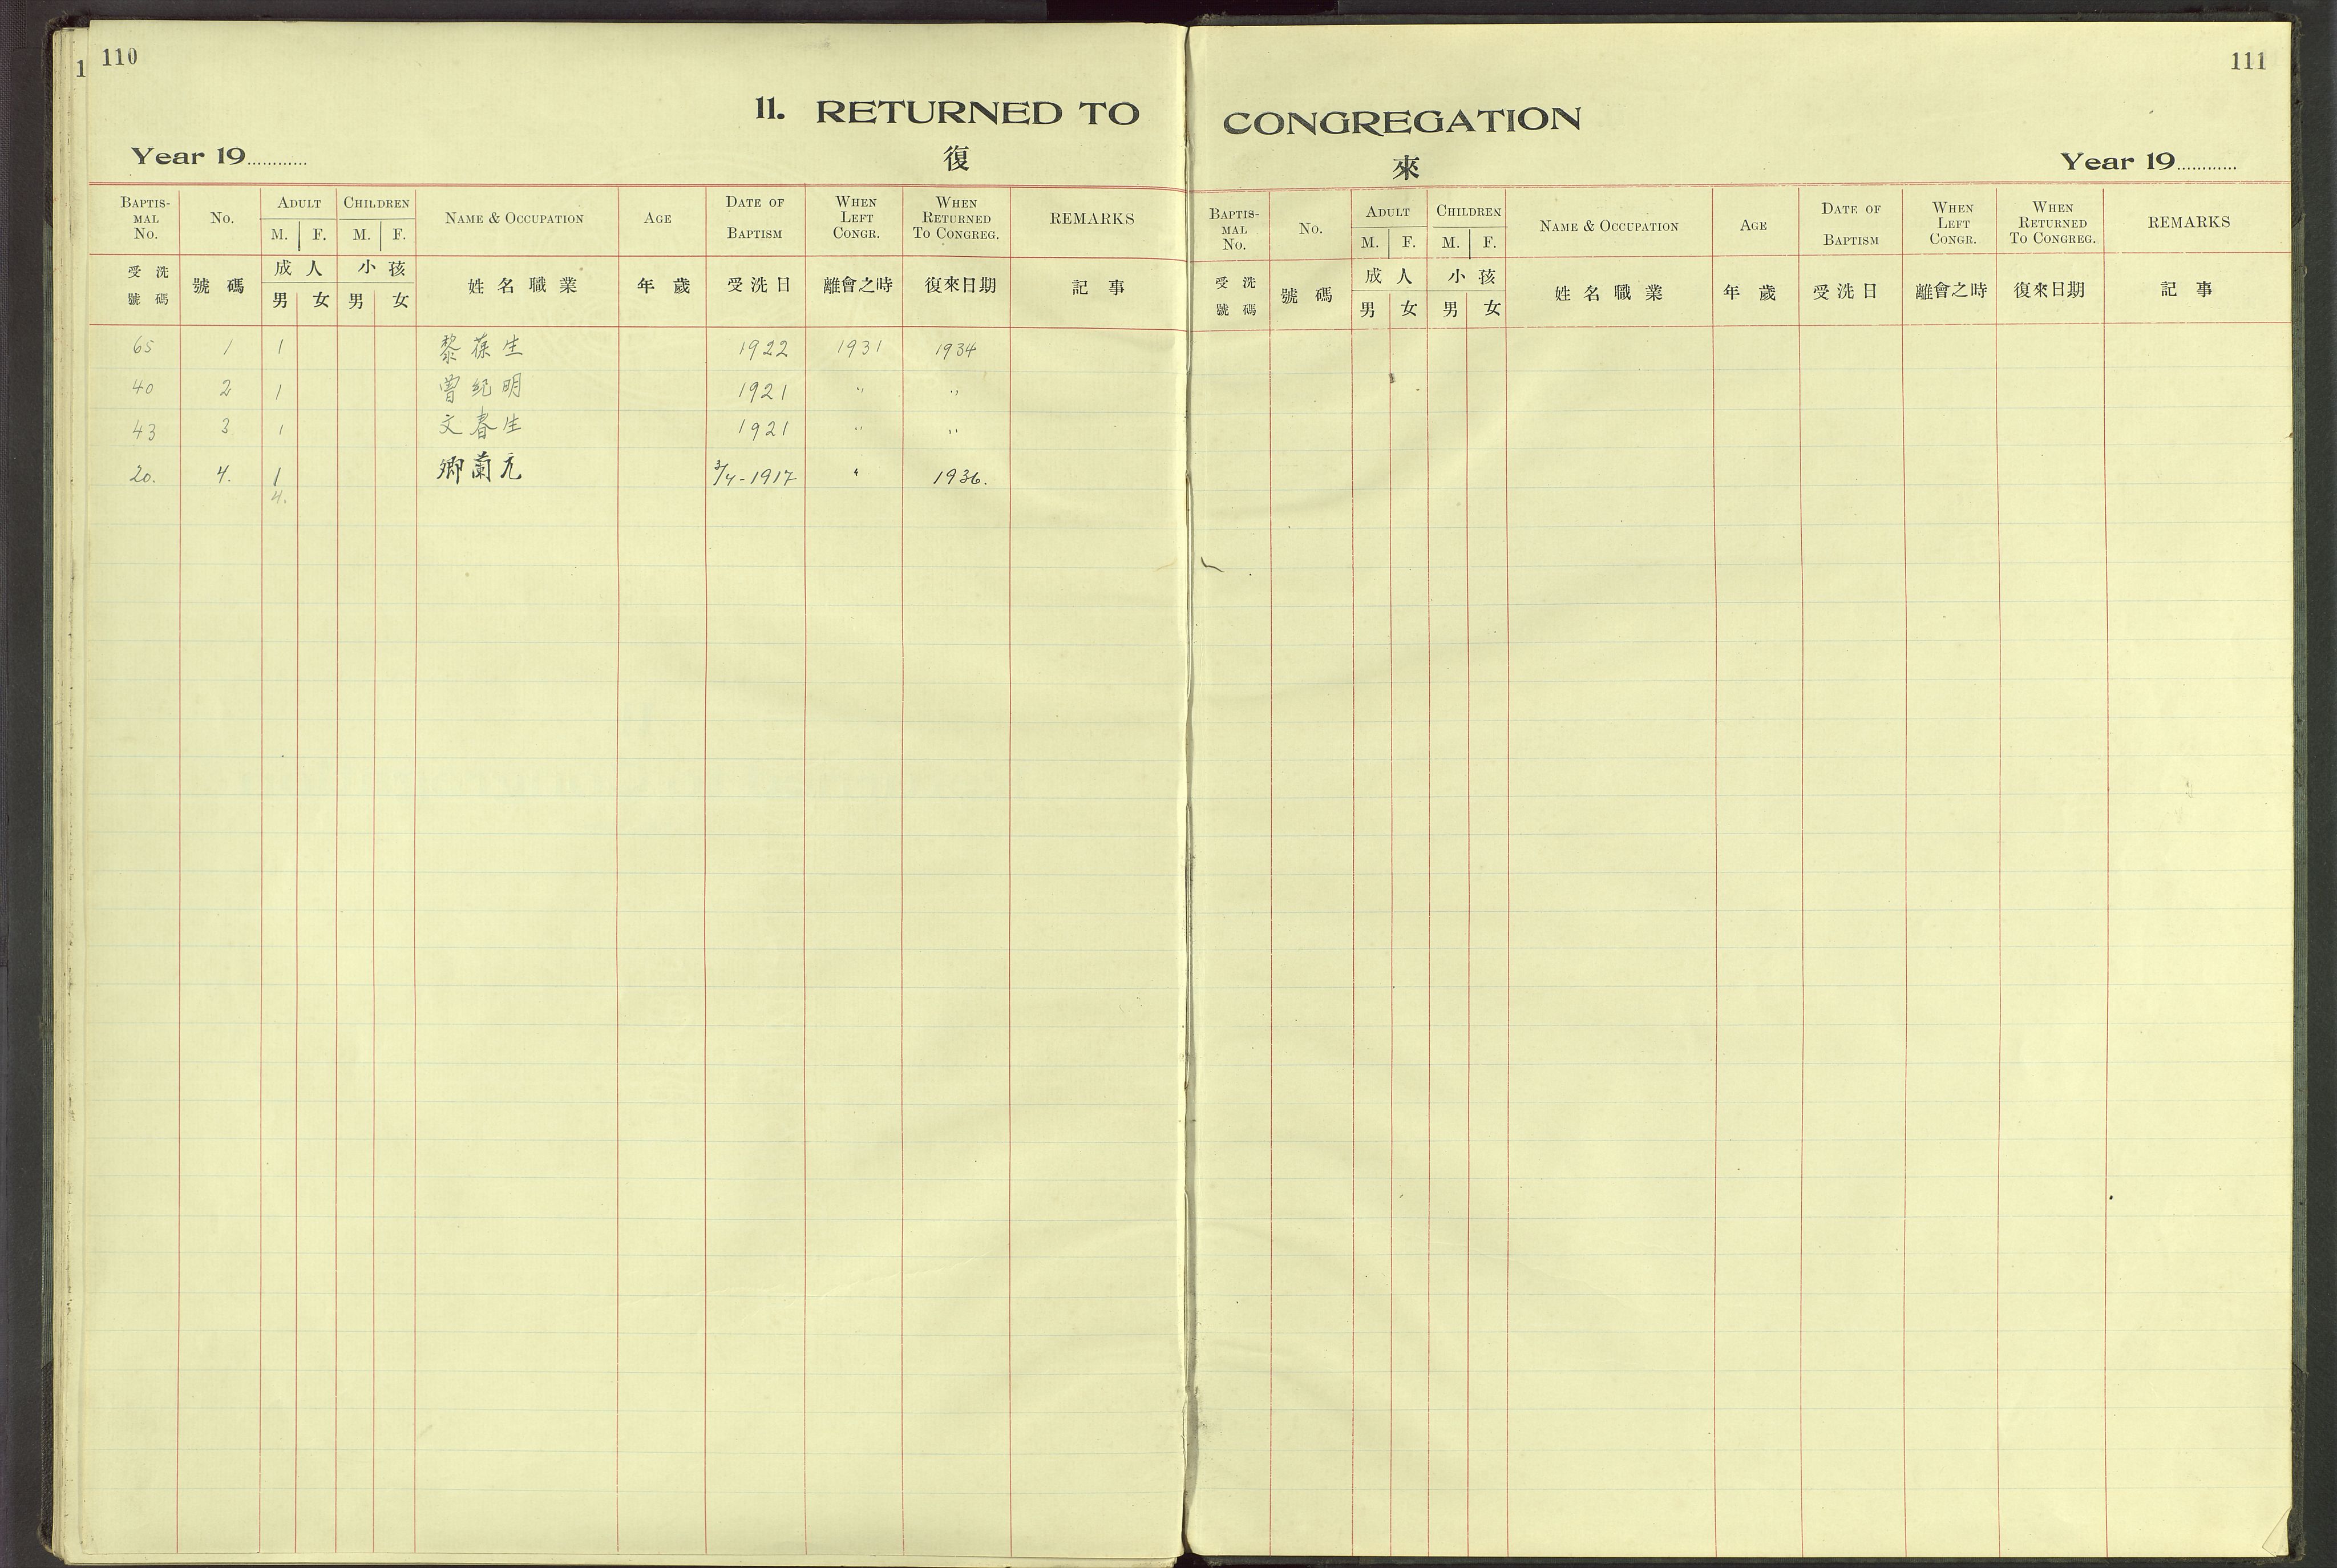 1
110
11. RETURNED TO
Year 19............
復
BAPTIS-MAL No. No. ADULT M. F. CHILDREN M. F. NAME & OCCUPATION AGE DATE OF BAPTISM WHEN LEFT CONGR. WHEN RETURNED TO CONGREG. REMARKS
受洗號碼 號碼 成人 男 女 小孩 男 女 姓名職業 年歲 受洗日 離會之時 復來日期 記事
65 1 1 黎葆生 1922 1931 1934
40 2 1 曾紀明 1921 " "
43 3 1 文春生 1921 " "
20. 4. 1 卿蘭亢 3/4-1917 " 1936.
4.
111
CONGREGATION
來
Year 19............
BAPTIS-MAL No. No. ADULT M. F. CHILDREN M. F. NAME & OCCUPATION AGE DATE OF BAPTISM WHEN LEFT CONGR. WHEN RETURNED TO CONGREG. REMARKS
受洗號碼 號碼 成人 男 女 小孩 男 女 姓名職業 年歲 受洗日 離會之時 復來日期 記事